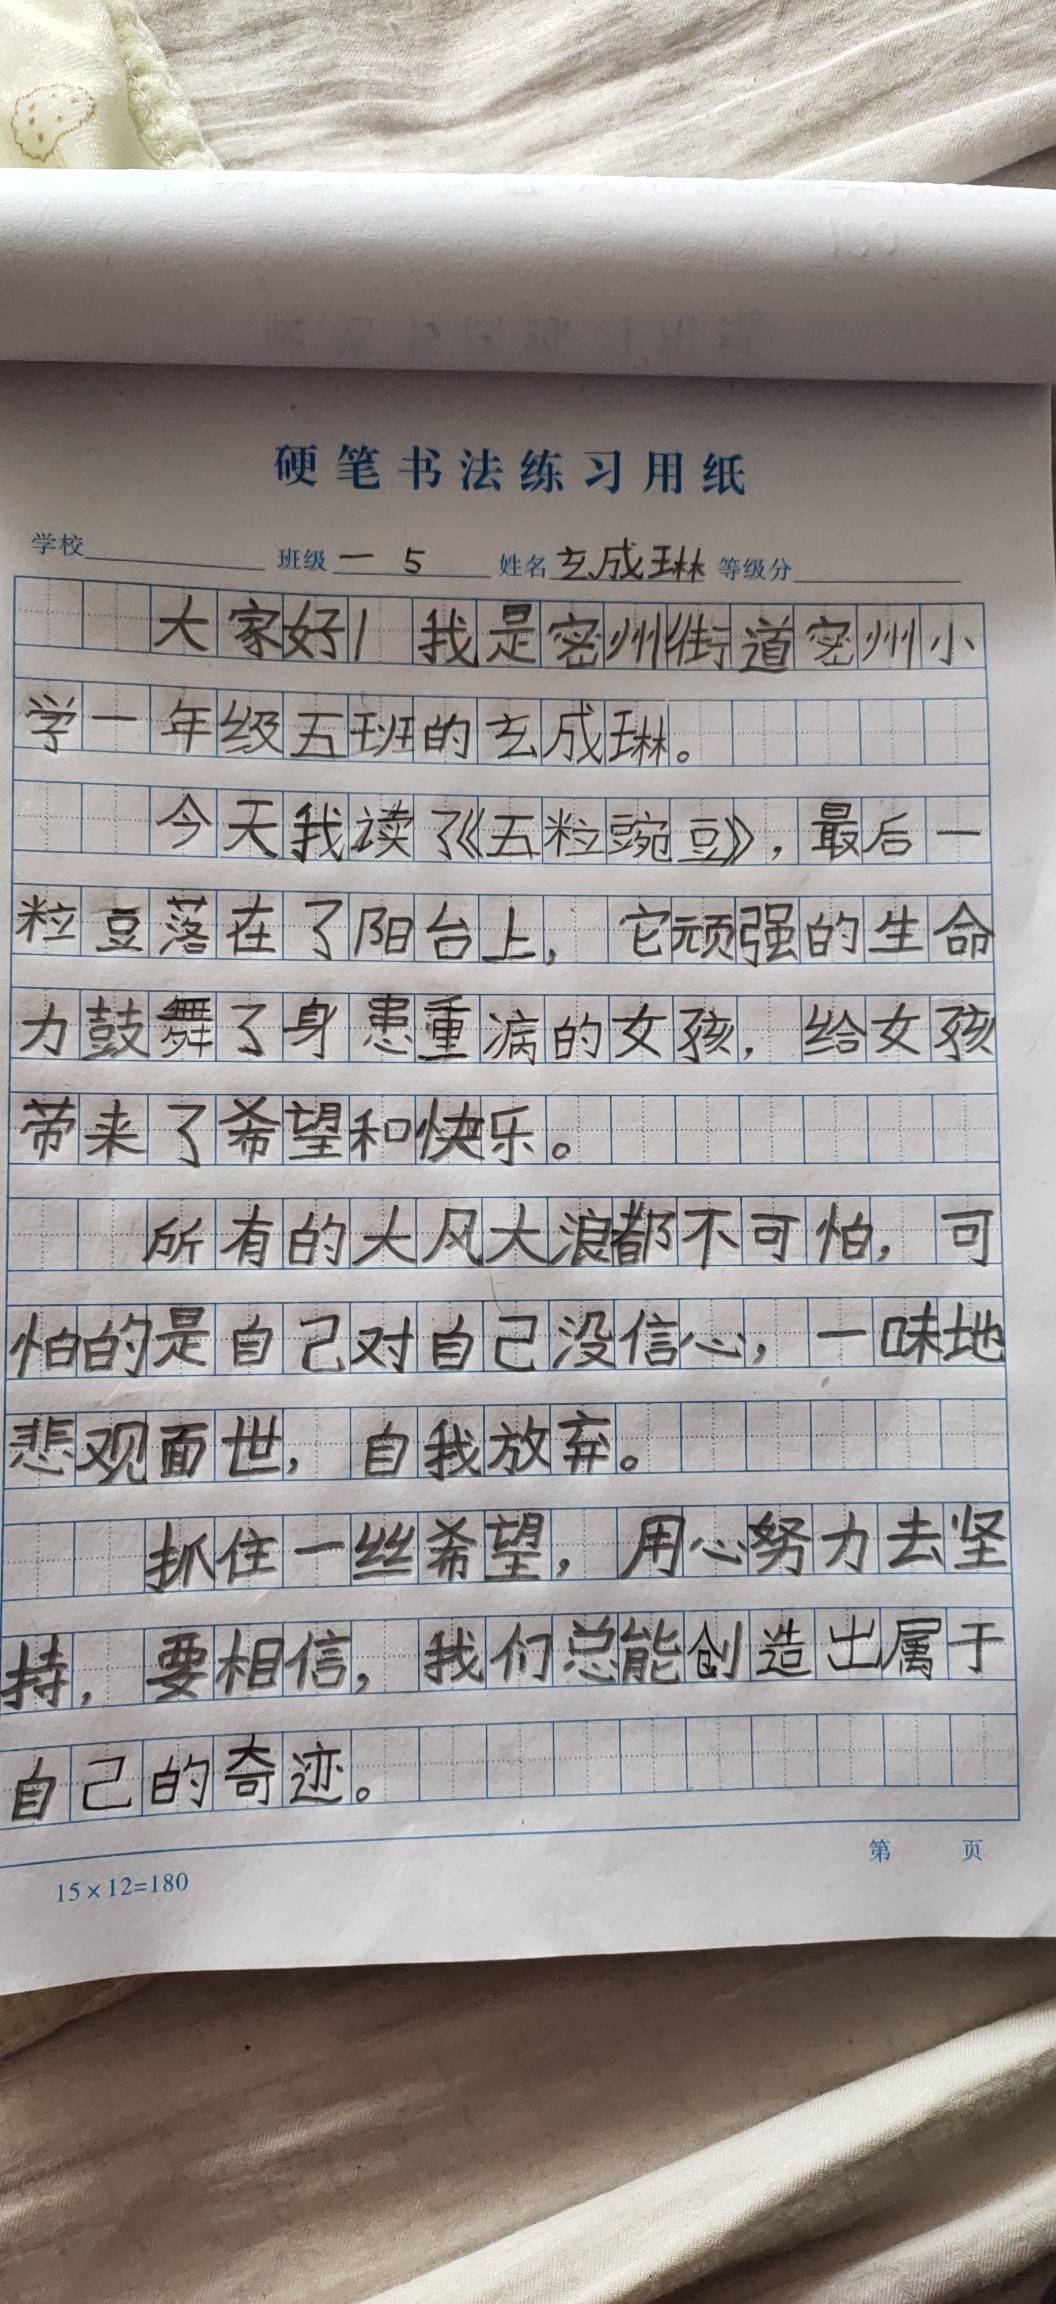 硬笔书法练习用纸
学校 班级 一 5 姓名 玄成琳 等级分
大家好！我是密州街道密州小
学一年级五班的玄成琳。
今天我读了《五粒豌豆》，最后一
粒豆落在了阳台上，它顽强的生命
力鼓舞了身患重病的女孩，给女孩
带来了希望和快乐。
所有的大风大浪都不可怕，可
怕的是自己对自己没信心，一味地
悲观面世，自我放弃。
抓住一丝希望，用心努力去坚
持，要相信，我们总能创造出属于
自己的奇迹。
第 页
15×12=180